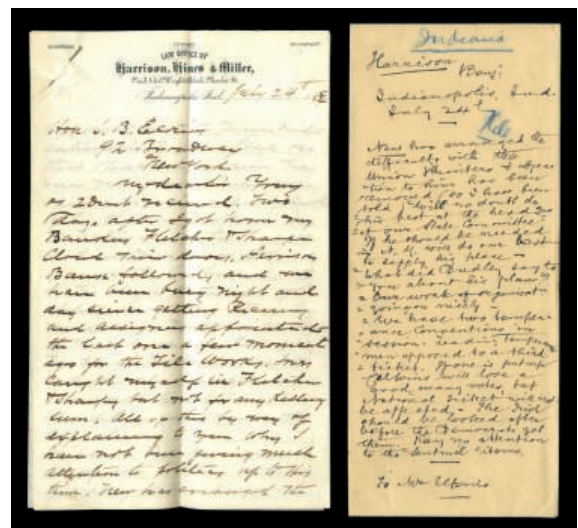 LAW OFFICE OF
Harrison, Hines & Miller,
Indianapolis, Ind. July 24th 188
Hon S. B. Elkins
92 Broadway
New York
My dear Sir Yours
of 22nd received. Two
days after I got home my
Bankers Fletcher & Sharpe
closed their doors, Harrison
Bank followed, and we
have been busy night and
day since getting Receivers
and assignees appointed
the last one a few moments
ago for the Tile Works. I was
caught myself in Fletcher
& Sharpe but not for any
sum. All of this by way of
explaining to you why I
have not been giving much
attention to politics up to this
time. New has arranged the
Indiana
Harrison
Benj.
Indianapolis, Ind.
July 24th
File
New has arranged the
difficulty with the
Union Printers & opposi
tion to him has been
removed (so I have been
told) will no doubt do
his best at the head
of our State Committee
If he should be needed
in N. Y. will do our best
to supply his place —
What did Dudley say to
you about his plans?
Our work of organizat
going on nicely
We have two temper
ance Conventions in
session. Leading temperance
men opposed to a third
ticket. If one is put up
will lose a
good many votes, but
National ticket will not
be affected. The Irish
should be looked after
before the Democrats get
them. Pay no attention
to the Sentinel items.
To Mr Elkins